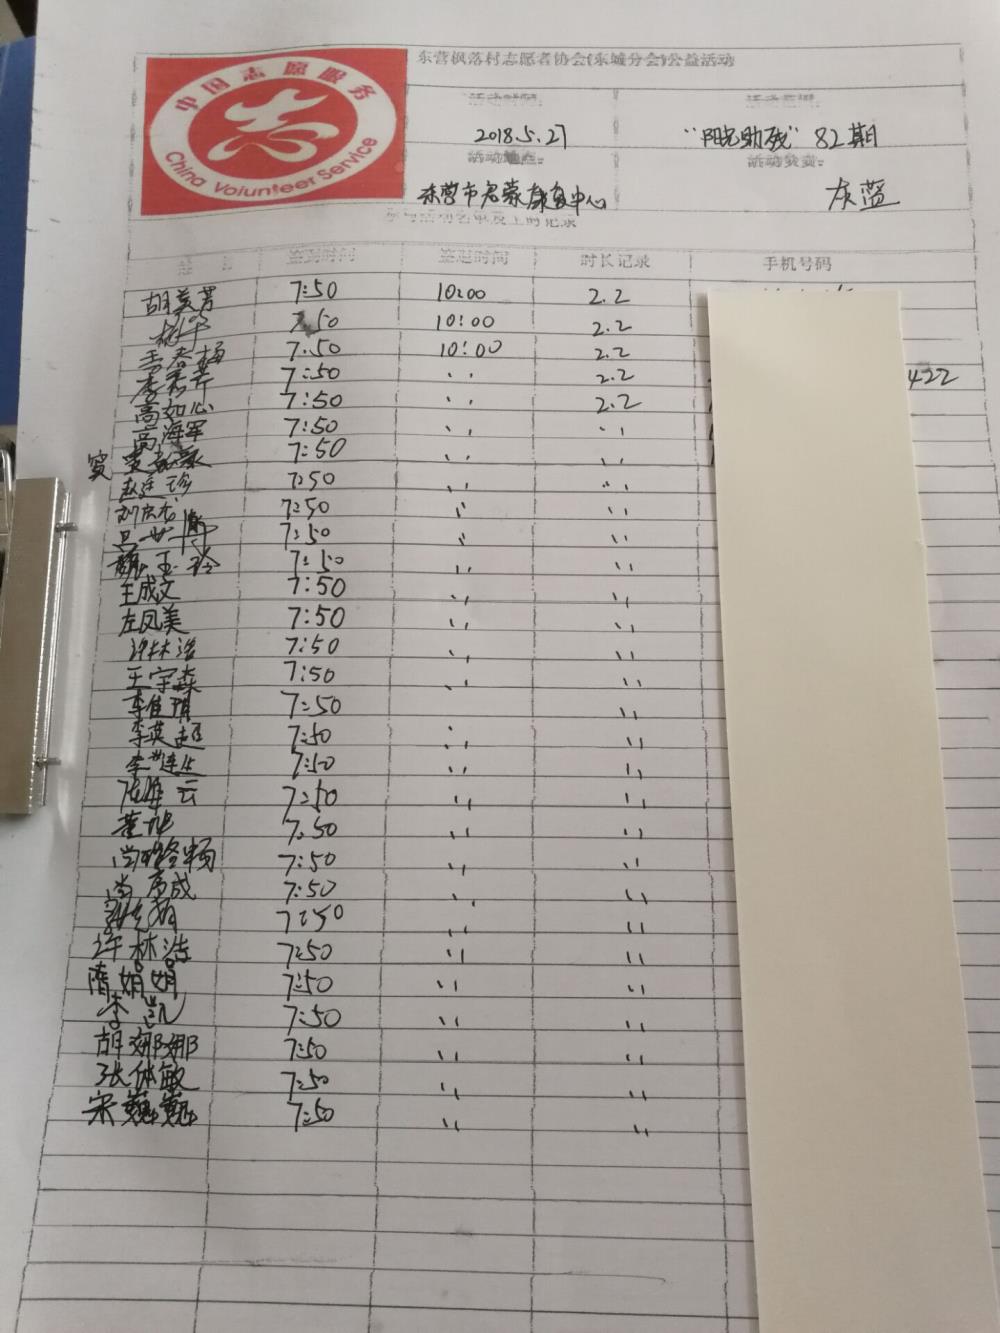 中国志愿服务
China Volunteer Service
东营枫落村志愿者协会(东城分会)公益活动
活动时间: 活动主题:
2018.5.27 "阳光助残" 82期
活动地点: 活动负责:
东营市启蒙康复中心 灰蓝
参与活动名单及工时记录
签到时间 签退时间 时长记录 手机号码
胡美芳 7:50 10:00 2.2
7:50 10:00 2.2
李春梅 7:50 10:00 2.2
李君芹 7:50 ,, 2.2 422
高如心 7:50 ,, 2.2
高海军 7:50 ,, ,,
窦 7:50 ,, ,,
赵廷珍 7:50 ,, ,,
刘庆龙 7:50 ,, ,,
7:50 ,, ,,
魏玉玲 7:50 ,, ,,
王成文 7:50 ,, ,,
左凤美 7:50 ,, ,,
许林浩 7:50 ,, ,,
王宇森 7:50 ,, ,,
李佳琪 7:50 ,,
李英超 7:50 ,, ,,
李 7:50 ,, ,,
云 7:50 ,, ,,
董旭 7:50 ,, ,,
尚 畅 7:50 ,, ,,
尚序成 7:50 ,, ,,
7:50 ,, ,,
许林浩 7:50 ,, ,,
隋娟娟 7:50 ,, ,,
李凯 7:50 ,, ,,
胡娜娜 7:50 ,, ,,
张体敏 7:50 ,, ,,
宋巍巍 7:50 ,, ,,